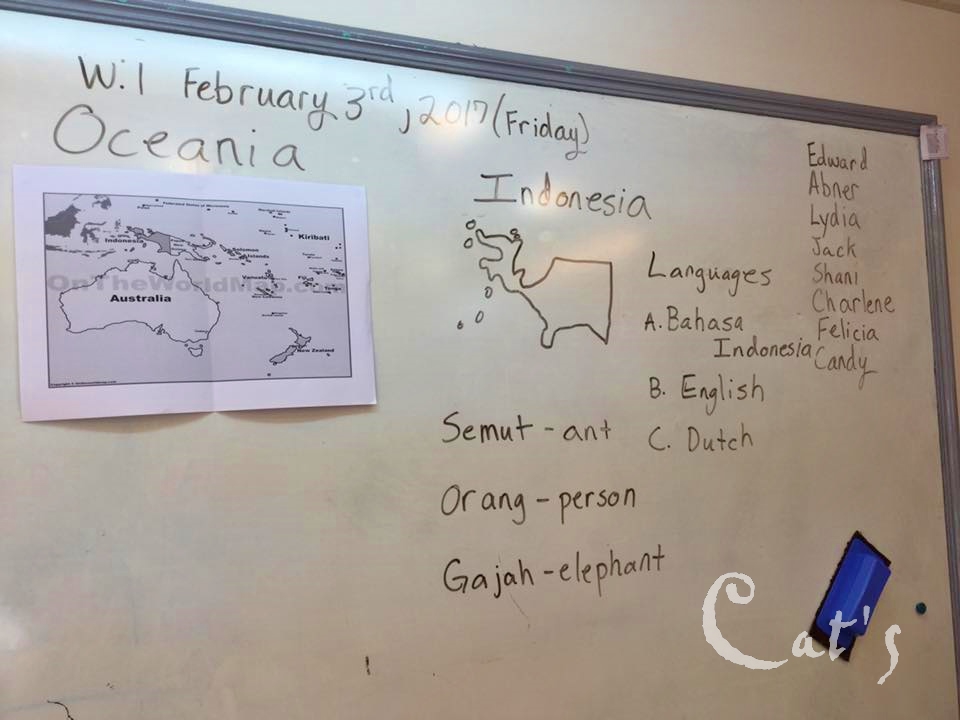 W.1 February 3rd, 2017 (Friday)
Oceania
Indonesia
Kiribati
Indonesia
Solomon
Islands
Vanuatu
OnTheWorldMap.com
Australia
New Zealand
Languages
A. Bahasa
Indonesia
B. English
C. Dutch
Semut - ant
Orang - person
Gajah - elephant
Edward
Abner
Lydia
Jack
Shani
Charlene
Felicia
Candy
Cat's